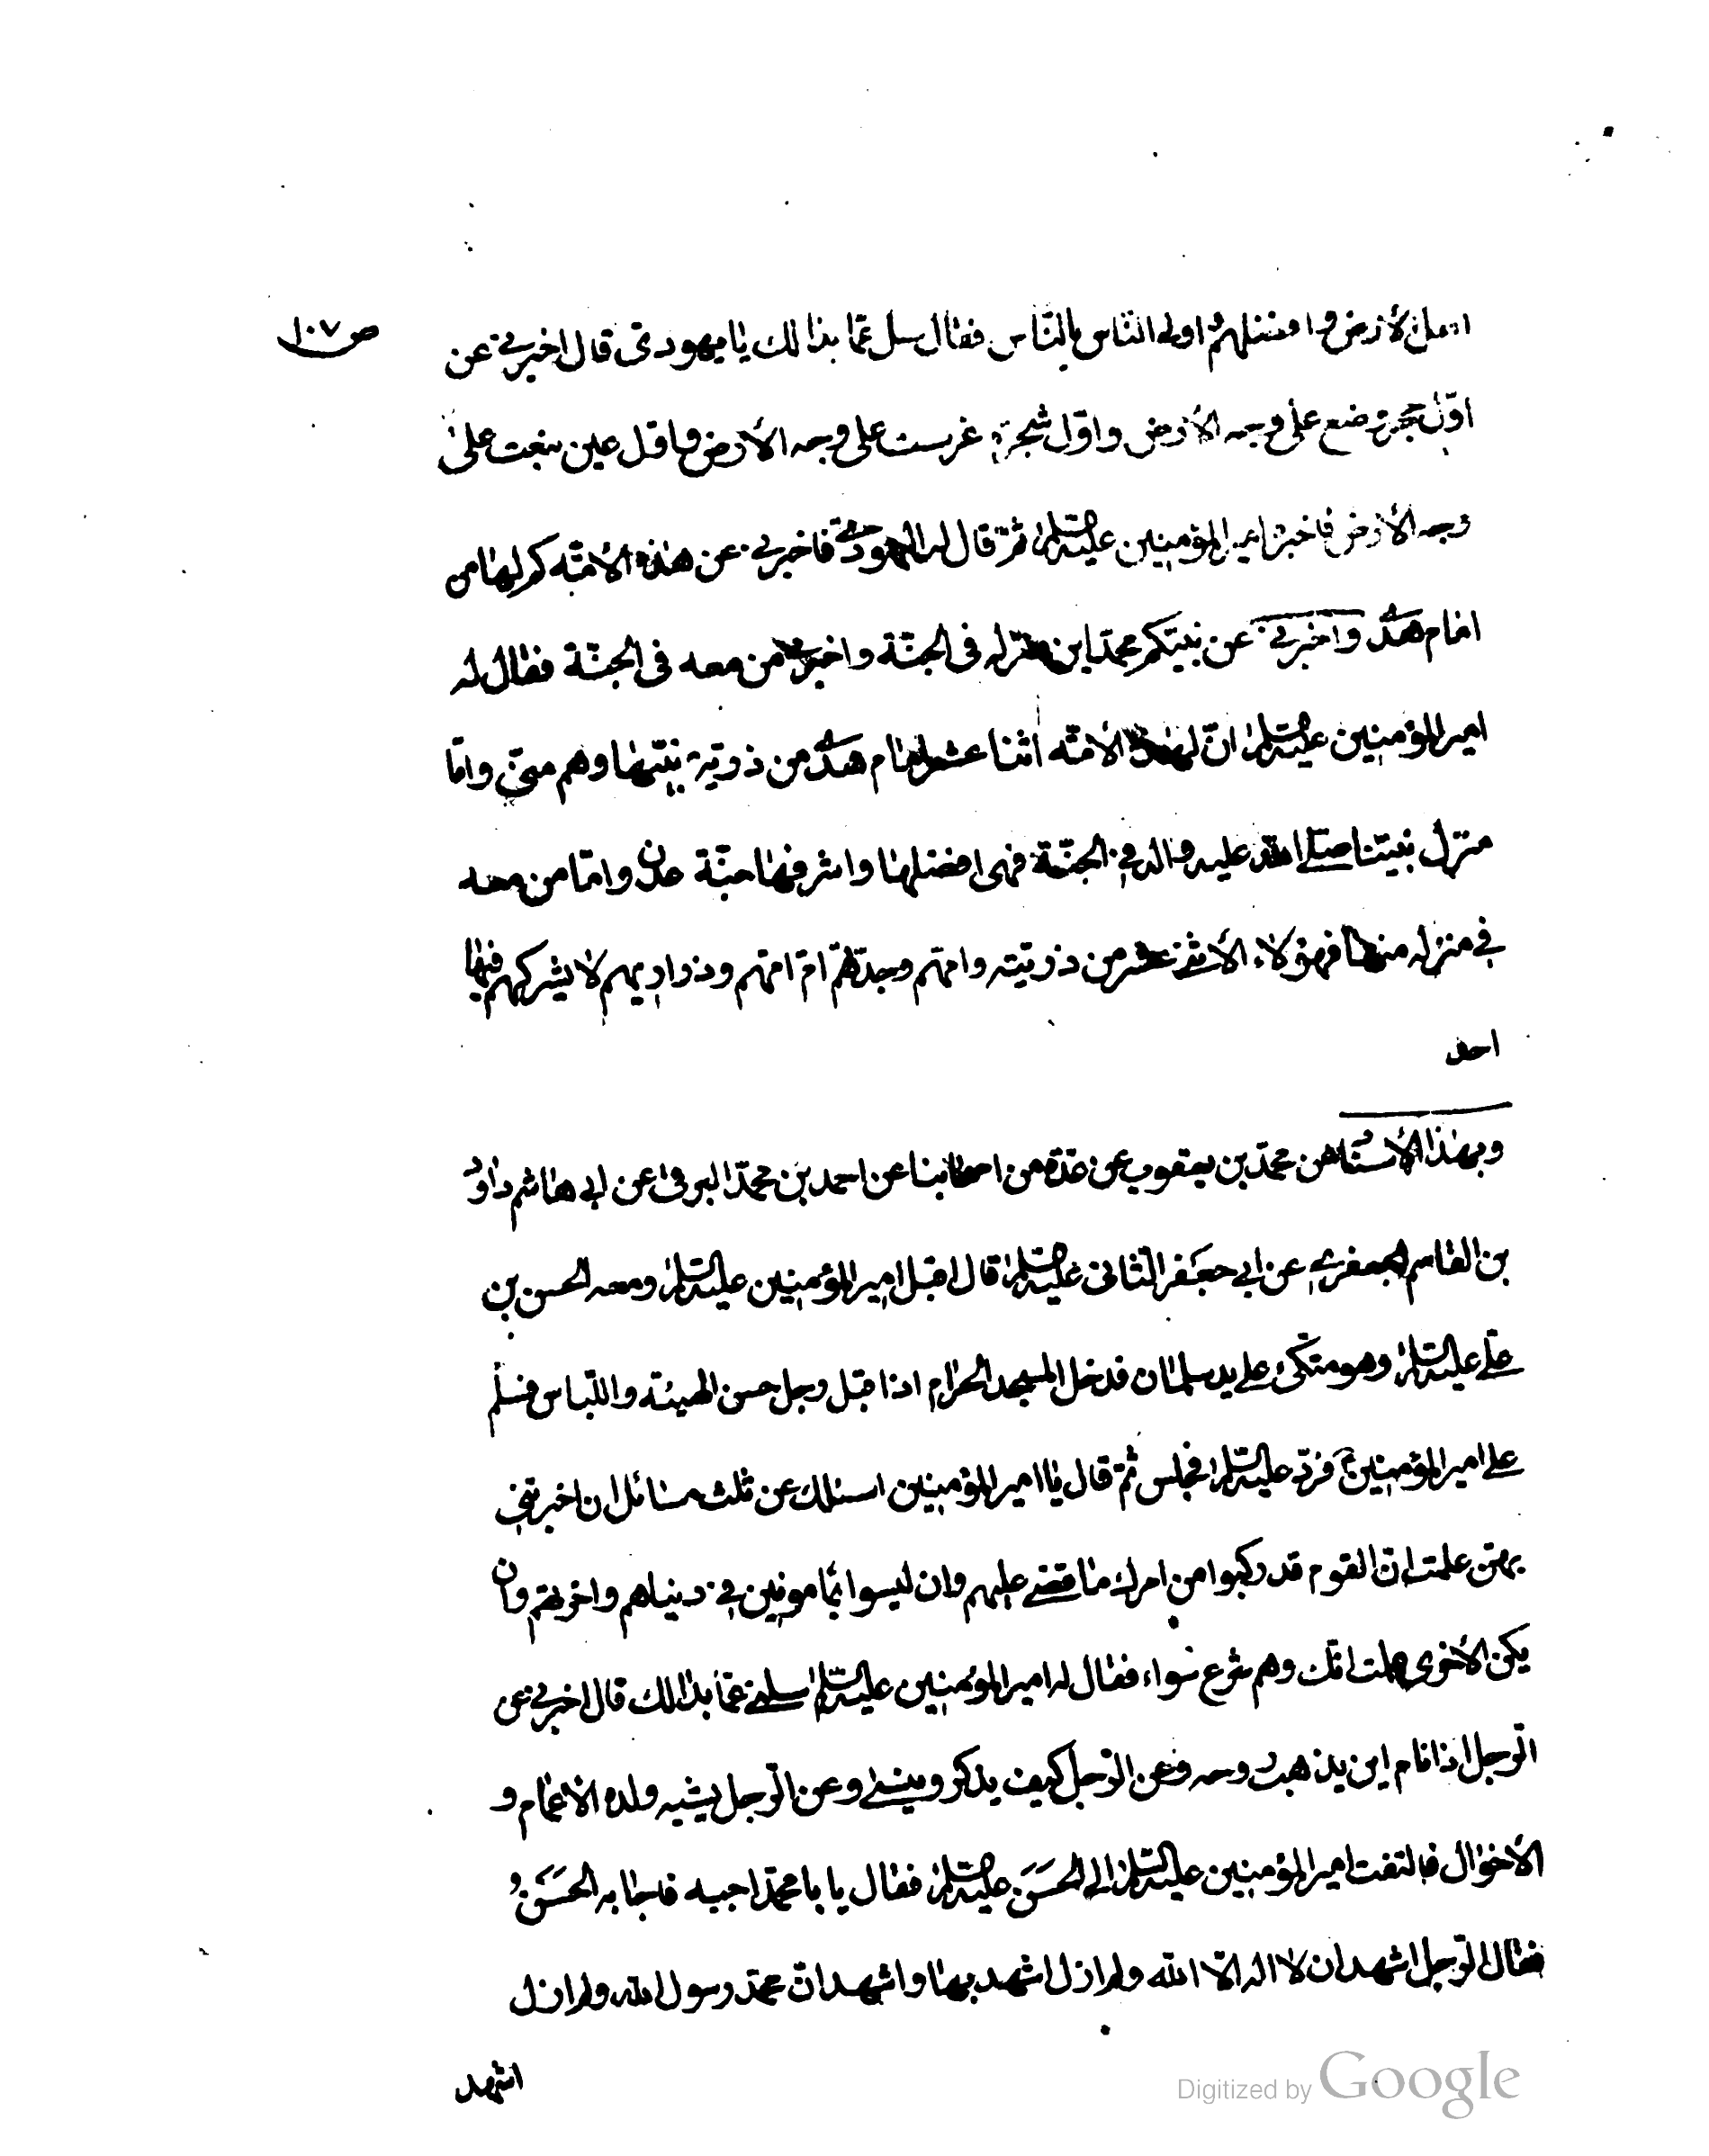 ص ١٠٧
اهل الأرض وافضلهم واولى الناس بالنّاس فقال سل عمّا بذا لك يا يهودىّ قال اخبرني عن
اوّل حجر وضع على وجه الأرض واوّل شجرة غرست على وجه الأرض واوّل عين نبعت على
وجه الأرض فاخبره امير المؤمنين عليه السّلام ثمّ قال له اليهوديّ فاخبرني عن هذه الأمّة كم لها من
امام هدًى واخبرني عن نبيّكم محمّد اين منزله فى الجنّة واخبرني من معه فى الجنّة فقال له
امير المؤمنين عليه السّلام انّ لهذه الأمّة اثنا عشر امام هدًى من ذريّة نبيّها وهم منّي وامّا
منزل نبيّنا صلّى الله عليه واله في الجنّة فهى افضلها واشرفها جنّة عدن وامّا من معه
في منزله منها فهؤلاء الأثنى عشر من ذريّته وامّهم وجدّتهم امّ امّهم وذراريهم لا يشركهم فيها
احد
وبهذا الأسناد عن محمّد بن يعقوب عن عدّة من اصحابنا عن احمد بن محمّد البرقى عن ابي هاشم داود
بن القاسم الجعفري عن ابي جعفر الثانى عليه السّلام قال اقبل امير المؤمنين عليه السّلام ومعه الحسن بن
عليّ عليه السّلام وهو متكئ على يد سلمان فدخل المسجد الحرام اذا قبل رجل حسن الهيئة واللّباس فسلّم
على امير المؤمنين ع فردّ عليه السّلام فجلس ثمّ قال يا امير المؤمنين اسئلك عن ثلث مسائل ان اخبرتني
بهنّ علمت انّ القوم قد ركبوا من امرك ما قضى عليهم وان ليسوا بمأمونين في دنياهم واخرتهم وان
يكن الأخرى علمت انّك وهم شرع سواء فقال له امير المؤمنين عليه السّلام سلني عمّا بذا لك قال اخبرني عن
الرّجل اذا نام اين يذهب روحه وعن الرّجل كيف يذكر وينسى وعن الرّجل يشبه ولده الأعمام و
الأخوال فالتفت امير المؤمنين عليه السّلام الى الحسن عليه السّلام فقال يا با محمّد اجبه فاجابه الحسن و
فقال الرّجل اشهد ان لا اله الّا الله ولم ازل اشهد بها واشهد انّ محمّد رسول الله ولم ازل
اشهد
Digitized by Google